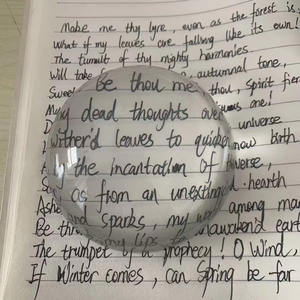 Make me thy lyre, even as the forest is:
What if my leaves are falling like its own!
The tumult of thy mighty harmonies
Will take autumnal tone,
Sweet Be thou me thou, Spirit fier
My dead thoughts over one!
Wither'd leaves to quicken universe
by the incantation of new birth
As from an unextinguish verse,
Ashe and sparks, my wo hearth
Be thr my lips to among man
unawaken'd eart
The trumpet of a prophecy! O Wind,
If Winter comes, can Spring be far